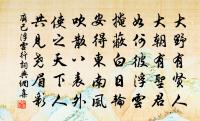 大野有賢人
大朝有聖君
如何彼浮雲
掩蔽白日輪
安得東南風
吹散八表外
使之天下人
共見堯眉彩
齊己浮雲行詞典網集